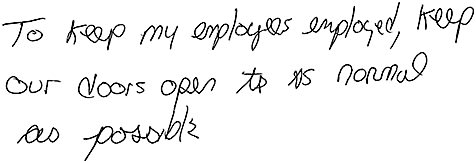 To keep my employees employed, keep
our doors open to as normal
as possible